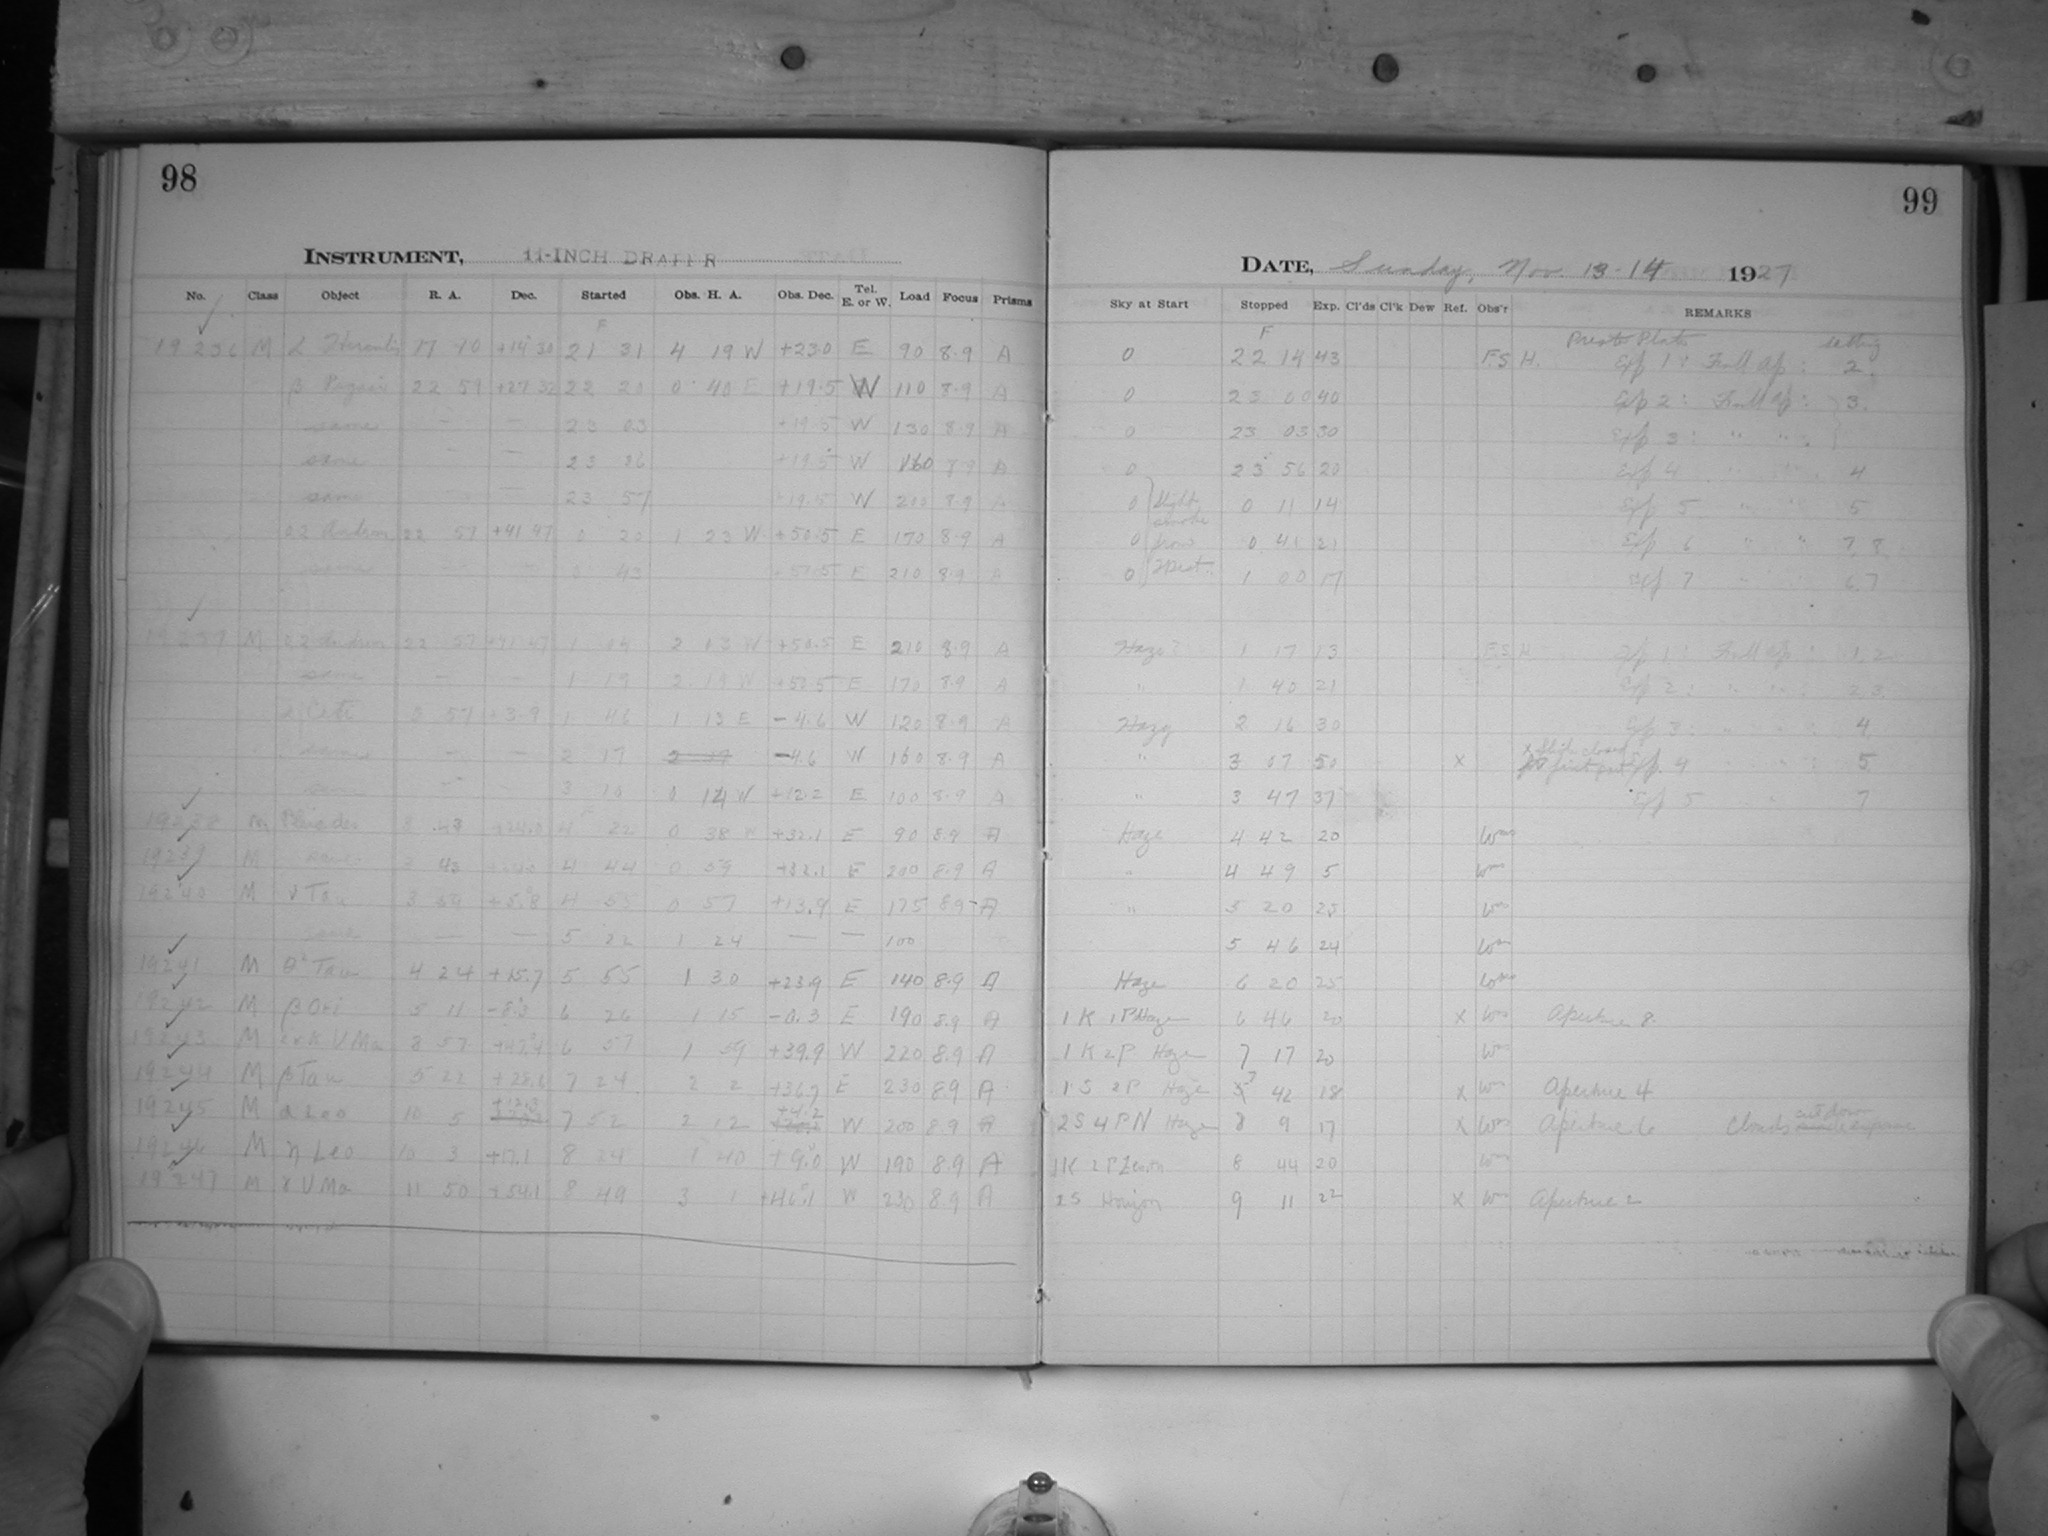 98
INSTRUMENT, 11-INCH DRAPER
No. Class Object R. A. Dec. Started Obs. H. A. Obs. Dec. Tel. E. or W. Load Focus Prisms
F
19236 M α Herculis 17 10 +14 30 21 31 4 19 W +23.0 E 90 8.9 A
β Pegasi 22 59 +27 32 22 20 0 40 E +19.5 W 110 8.9 A
same — — 23 03 +19.5 W 130 8.9 A
same — — 23 36 +19.5 W 160 8.9 A
same — — 23 57 +19.5 W 200 8.9 A
22 57 +41 47 0 20 1 23 W +50.5 E 170 8.9 A
same — — 0 43 +50.5 E 210 8.9 A
19237 M 22 57 +41 47 1 04 2 13 W +50.5 E 210 8.9 A
same — — 1 19 2 19 W +50.5 E 170 8.9 A
Ceti 2 57 +3.9 1 46 1 13 E -4.6 W 120 8.9 A
same — — 2 17 -4.6 W 160 8.9 A
same — — 3 10 0 14 W +12.2 E 100 8.9 A
19238 M Pleiades 3 43 +24.0 4 22 0 38 W +32.1 E 90 8.9 A
19239 M same 3 43 4 44 0 59 +32.1 E 200 8.9 A
19240 M Tau 3 59 +5.8 4 55 0 57 +13.9 E 175 8.9 A
same — — 5 22 1 24 — — 100
19241 M θ² Tau 4 24 +15.7 5 55 1 30 +23.9 E 140 8.9 A
19242 M β Ori 5 11 -8.3 6 26 1 15 -0.3 E 190 8.9 A
19243 M ι+κ U Ma 8 57 +47.4 6 57 1 59 +39.9 W 220 8.9 A
19244 M β Tau 5 22 +28.6 7 24 2 2 +36.7 E 230 8.9 A
19245 M α Leo 10 5 +12.3 7 52 2 12 +4.2 W 200 8.9 A
19246 M η Leo 10 3 +17.1 8 24 1 40 +9.0 W 190 8.9 A
19247 M γ U Ma 11 50 +54.1 8 49 3 1 +46.1 W 230 8.9 A
99
DATE, Sunday, Nov. 13-14 1927
Sky at Start Stopped Exp. Cl'ds Cl'k Dew Ref. Obs'r REMARKS
F Plate setting
0 22 14 43 F.S.H. Exp 1: Full Ap: 2.
0 23 00 40 Exp 2: Full Ap: 3.
0 23 03 30 Exp 3: " "
0 23 56 20 Exp 4 " " 4
0 Slight 0 11 14 Exp 5 " " 5
smoke
0 from 0 41 21 Exp 6 " " 7, 8
0 West. 1 00 17 Exp 7 " " 6, 7
Haze? 1 17 13 F.S.H. Exp 1: Full Ap: 1, 2
" 1 40 21 Exp 2: " " : 2, 3
Hazy 2 16 30 Exp 3: " " : 4
" 3 07 50 x Exp. 4 " " : 5
" 3 47 37 Exp 5 " 7
Haze 4 42 20 Wms
" 4 49 5 Wm
" 5 20 25 Wm
5 46 24 Wm
Haze 6 20 25 Wms
1 K 1 P Haze 6 46 20 x Wm Aperture 8.
1 K 2 P Haze 7 17 20 Wm
1 S 2 P Haze 7 42 18 x Wm Aperture 4
2 S 4 P N Haze 8 9 17 x Wm Aperture 6 Clouds cut down exposure
1K 2 P Zenith 8 44 20 Wm
2 S Horizon 9 11 22 x Wm Aperture 2